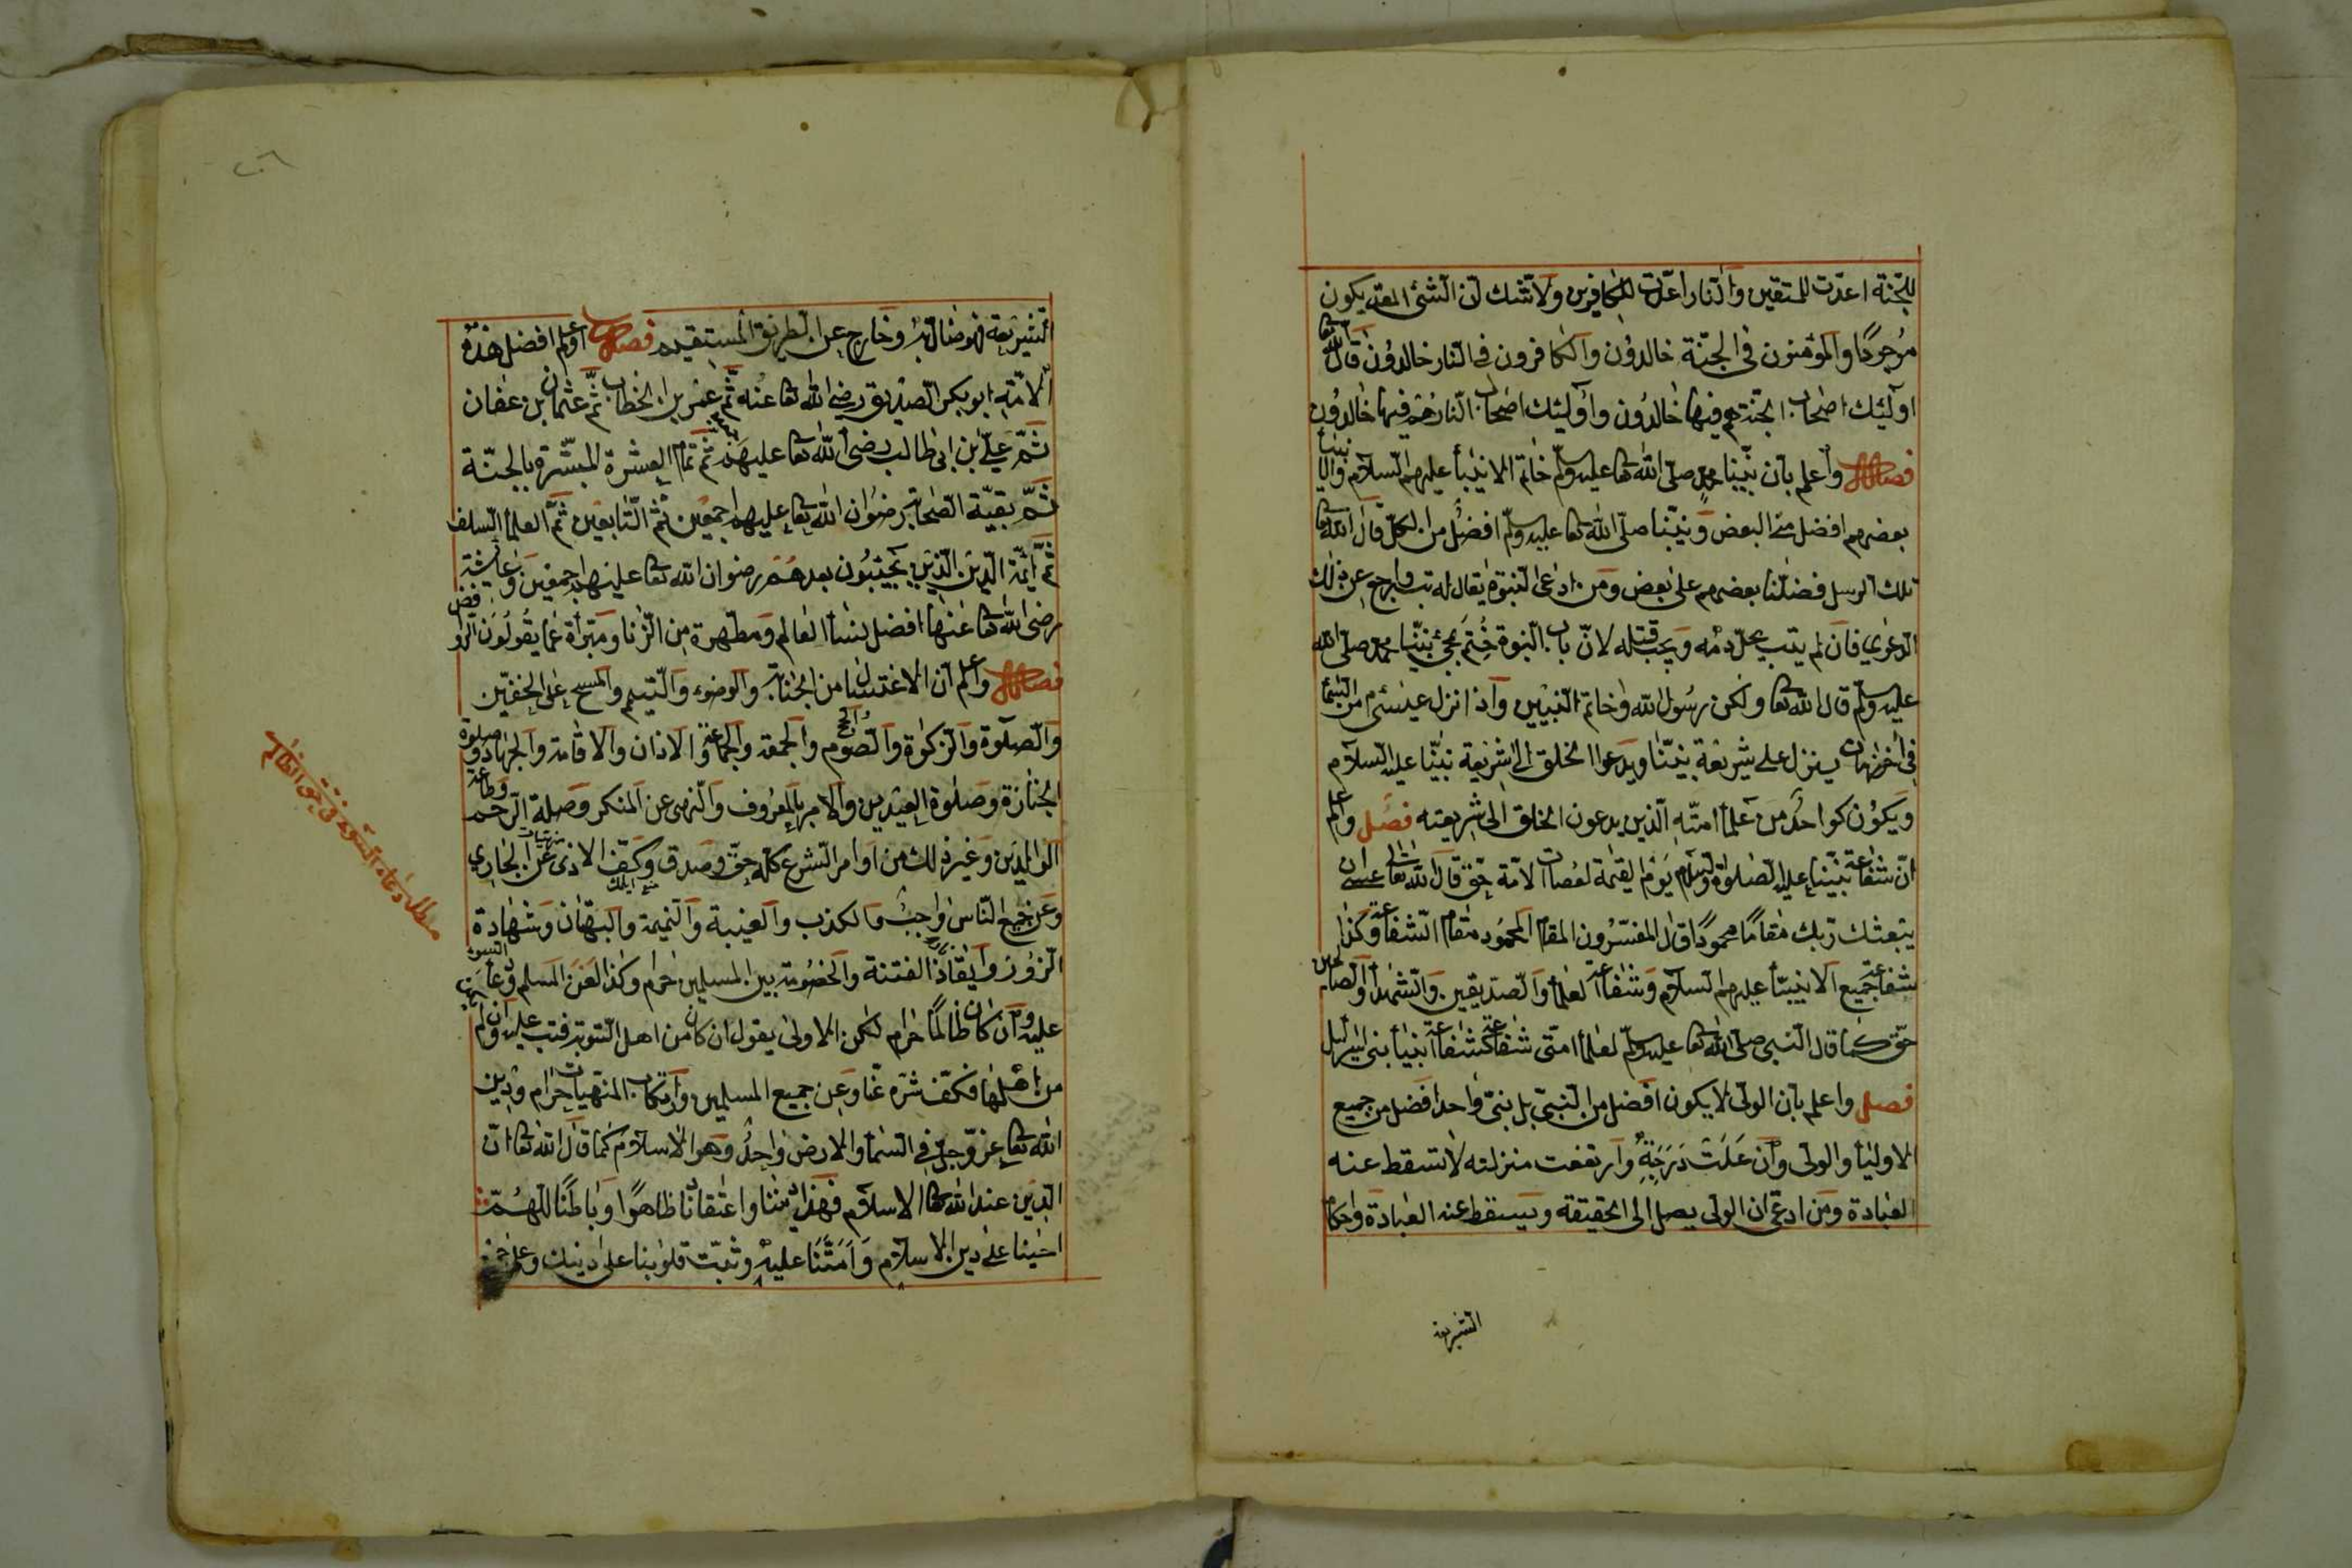 للجنة اعدت للمتقين والنار اعدت للكافرين ولا شك ان الشئ المعد يكون
موجودًا والمؤمنون في الجنة خالدون والكافرون في النار خالدون قال الله تعا
اولئك اصحاب الجنة هم فيها خالدون واولئك اصحاب النار هم فيها خالدون
فصل واعلم بان نبينا محمد صلى الله تعا عليه وسلم خاتم الانبياء عليهم السلام
بعضهم افضل من البعض ونبينا صلى الله تعا عليه وسلم افضل من الكل قال الله تعا
تلك الرسل فضلنا بعضهم على بعض ومن ادعى النبوة يقال له تب وارجع عن ذلك
الدعوى فان لم يتب يحل دمه ويجب قتله لان باب النبوة ختم بمجئ نبينا محمد صلى الله
عليه وسلم قال الله تعا ولكن رسول الله وخاتم النبيين واذا نزل عيسى من السماء
في اخر زمان ينزل على شريعة نبينا ويدعوا الخلق الى شريعة نبينا عليه السلام
ويكون كواحد من علماء امته الذين يدعون الخلق الى شريعته فصل واعلم
ان شفاعة نبينا عليه الصلوة والسلام يوم القيمة لعصات الامة حق قال الله تعا عسى ان
يبعثك ربك مقامًا محمودًا قال المفسرون المقام المحمود مقام الشفاعة وكذا
شفاعة جميع الانبياء عليهم السلام وشفاعة العلماء والصديقين والشهداء والصالحين
حق كما قال النبي صلى الله تعا عليه وسلم لعلماء امتى شفاعة كشفاعة انبياء بنى اسرائيل
فصل واعلم بان الولى لا يكون افضل من النبى بل نبى واحد افضل من جميع
الاولياء والولى وان علت درجته وارتفعت منزلته لا تسقط عنه
العبادة ومن ادعى ان الولى يصل الى الحقيقة ويسقط عنه العبادة واحكام
الشريعة
الشريعة فهو ضال وخارج عن الطريق المستقيم فصل اعلم افضل هذه
الامة ابو بكر الصديق رضى الله تعا عنه ثم عمر بن الخطاب ثم عثمان بن عفان
ثم على ابن ابى طالب رضى الله تعا عليهم ثم تمام العشرة المبشرة بالجنة
ثم بقية الصحابة رضوان الله تعا عليهم اجمعين ثم التابعين ثم العلماء السلف
ثم ائمة الدين الذين يجيبون بعدهم رضوان الله تعا عليهم اجمعين وعائشة
رضى الله تعا عنها افضل نساء العالم ومطهرة من الزنا ومبرأة عما يقولون الروافض
فصل واعلم ان الاغتسال من الجنابة والوضوء والتيمم والمسح على الخفين
والصلوة والزكوة والصوم والحج والجمعة والجماعة والاذان والاقامة والجهاد وصلوة
الجنازة وصلوة العيدين والامر بالمعروف والنهى عن المنكر وصلة الرحم وطاعة
الوالدين وغير ذلك من اوامر الشرع كله حق وصدق وكف الاذى عن الجارى
وعن جميع الناس واجب والكذب والغيبة والنميمة والبهتان وشهادة
الزور وايقاذ الفتنة والخصومة بين المسلمين حرام وكذا لعن المسلم ودعاء السوء
عليه وان كان ظالمًا حرام لكن الاولى يقول ان كان من اهل التوبة فتب عليه وان لم
من اهلها فكف شره عنا وعن جميع المسلمين وارتكاب المنهيات حرام ودين
الله تعا عز وجل في السماء والارض واحد وهو الاسلام كما قال الله تعا ان
الدين عند الله تعا الاسلام فهذا ديننا واعتقادنا ظاهرًا وباطنًا اللهم
احينا على دين الاسلام وامتنا عليه وثبت قلوبنا على دينك
مطلب دعاء السوء في حق الظالم